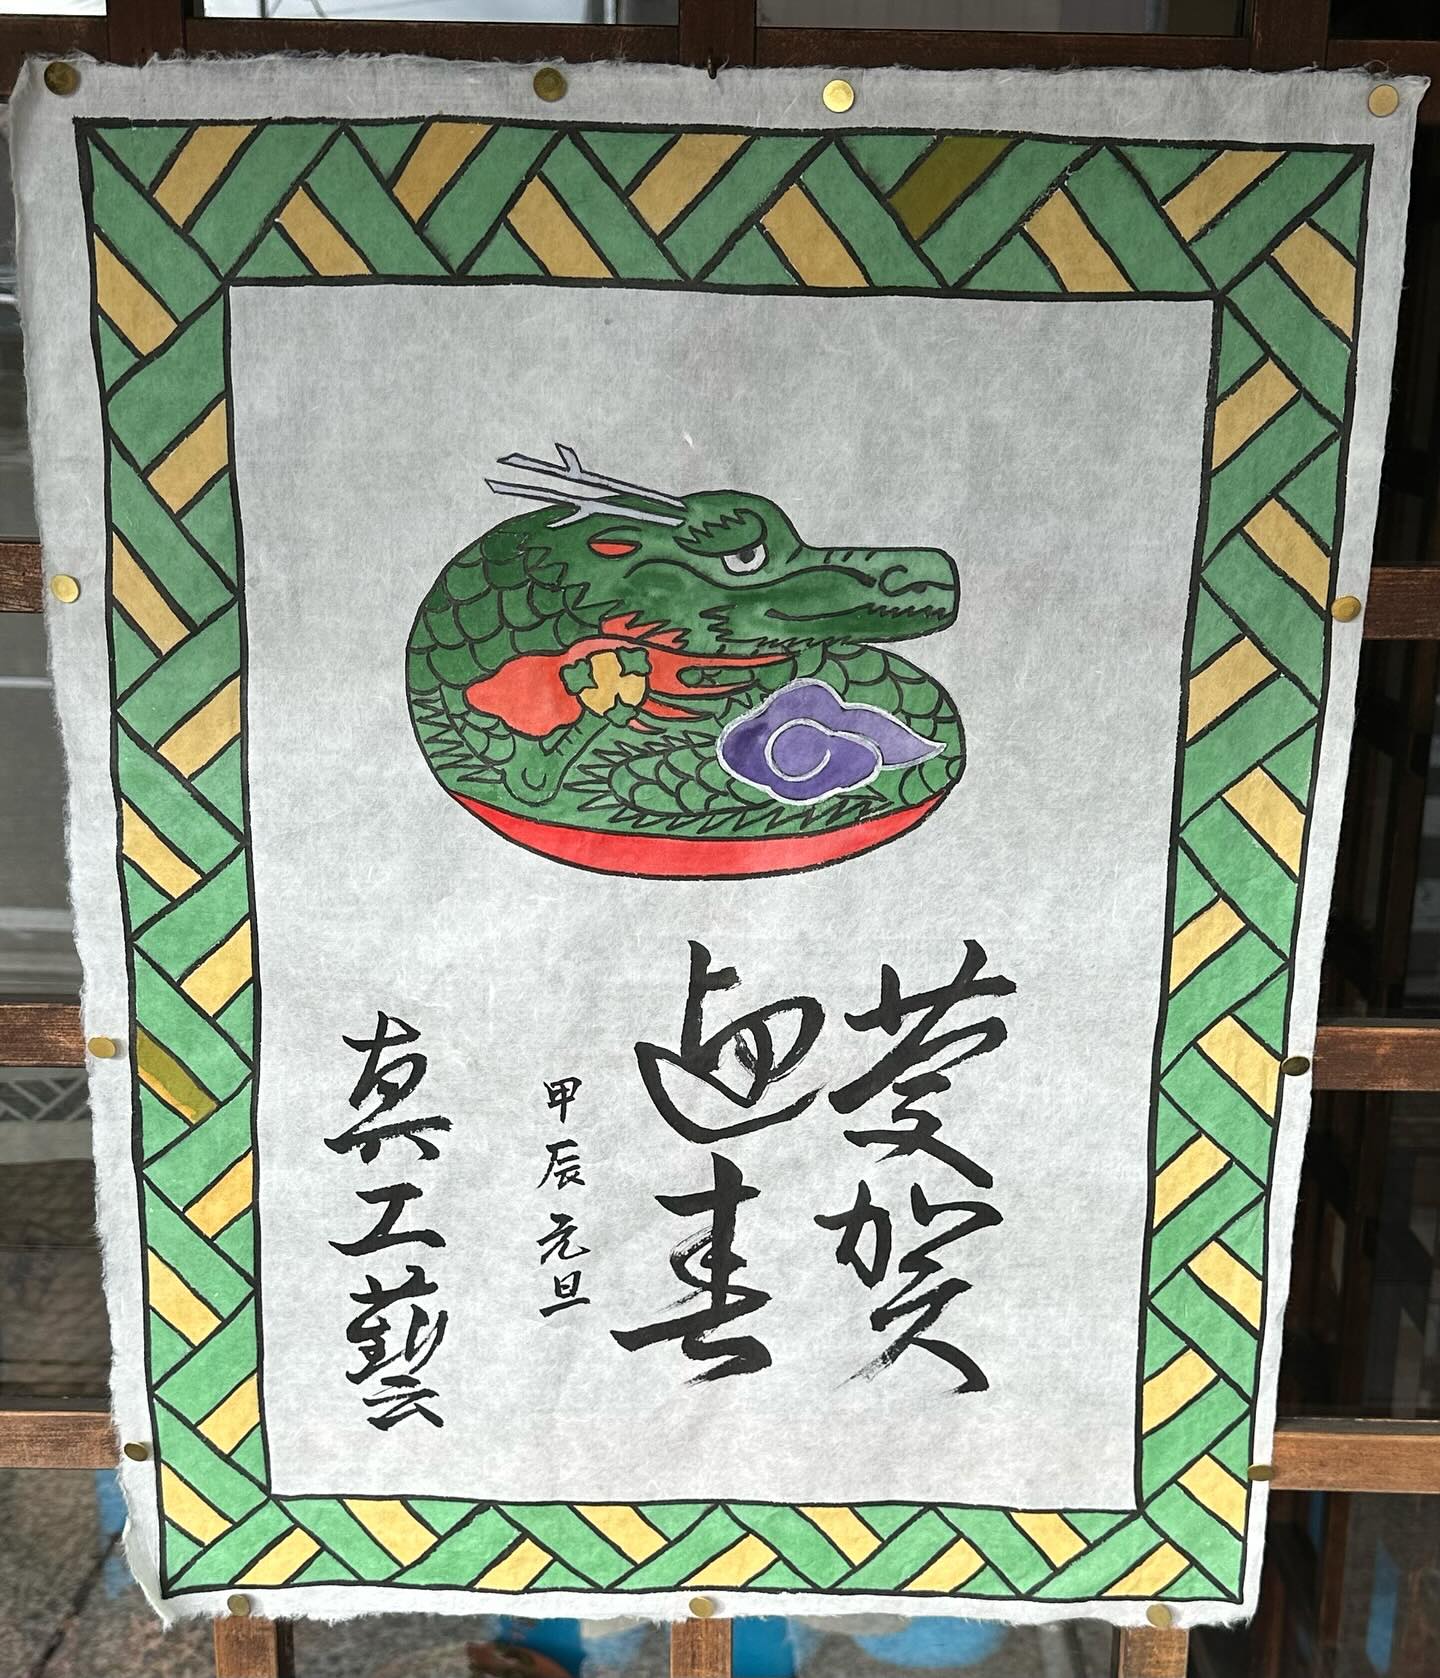 慶賀
迎春
甲辰元旦
真工藝